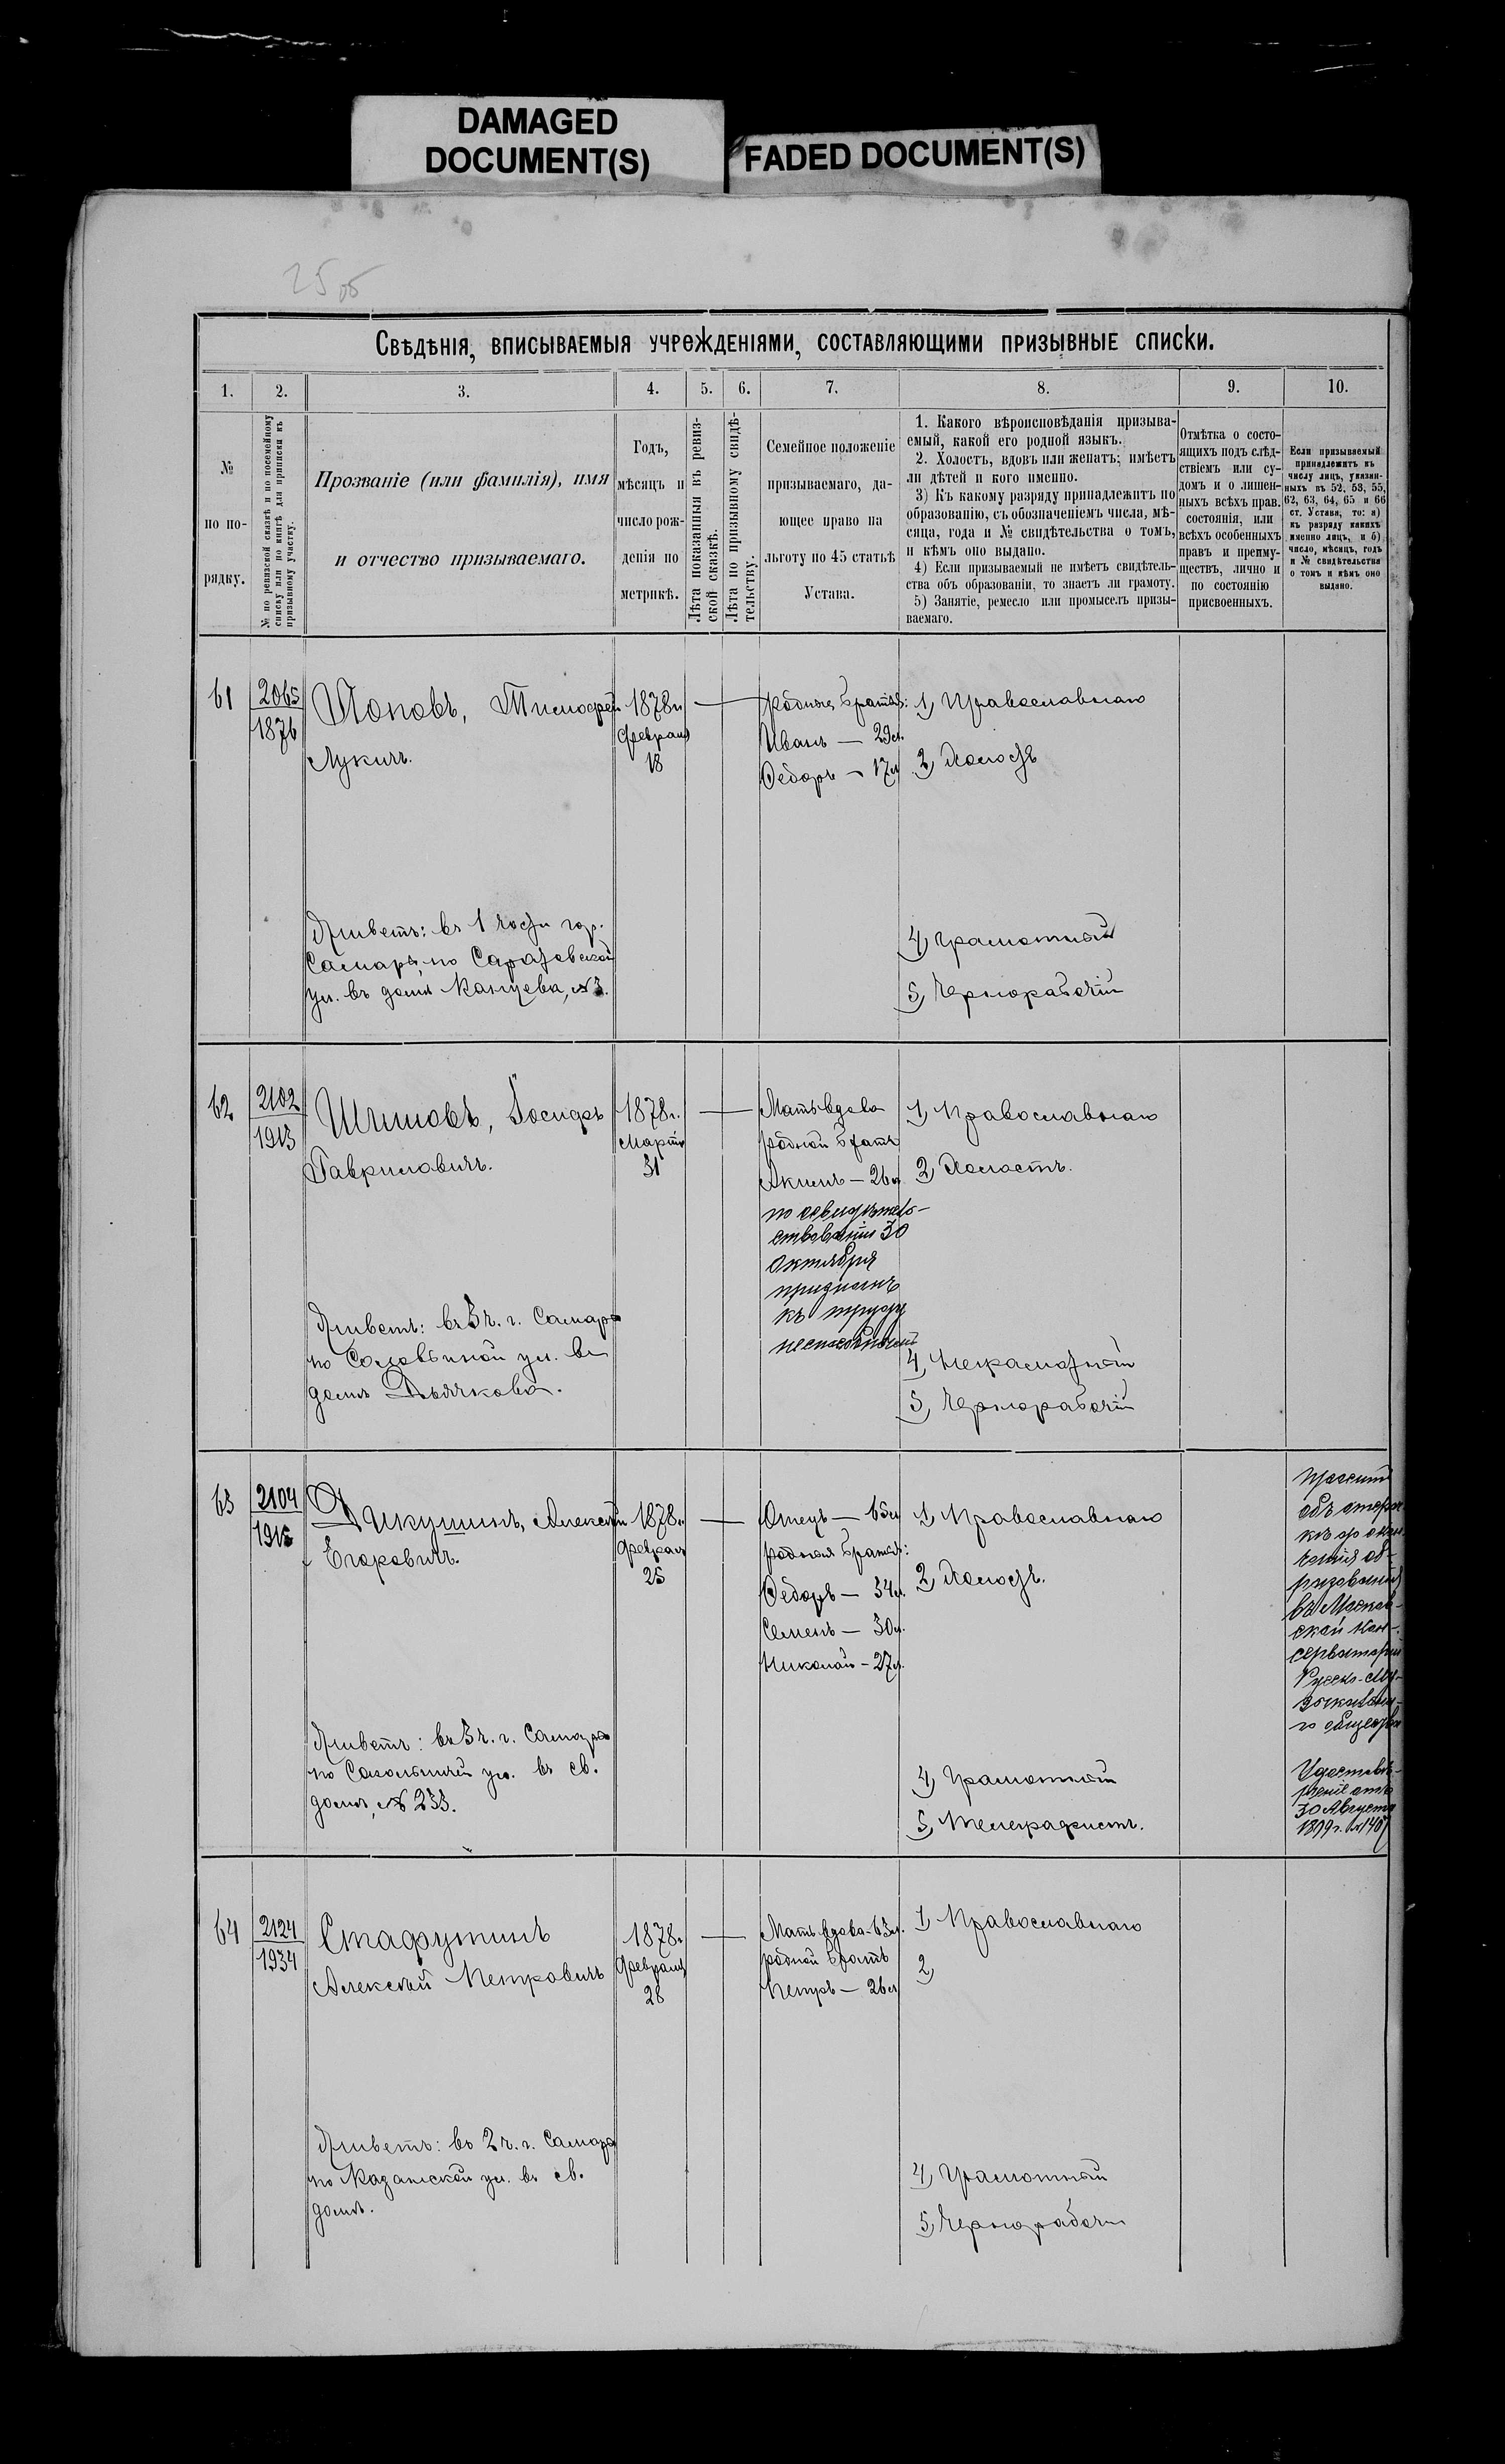 DAMAGED
DOCUMENT(S)
FADED DOCUMENT(S)
25 об
Свѣдѣнія, вписываемыя учрежденіями, составляющими призывные списки.
1. 2. 3. 4. 5. 6. 7. 8. 9. 10.
№
по по-
рядку.
№ по ревизской сказкѣ и по посемейному
списку или по книгѣ для приписки къ
призывному участку.
Прозваніе (или фамилія), имя
и отчество призываемаго.
Годъ,
мѣсяцъ и
число рож-
денія по
метрикѣ.
Лѣта показанныя въ ревиз-
ской сказкѣ.
Лѣта по призывному свидѣ-
тельству.
Семейное положеніе
призываемаго, да-
ющее право на
льготу по 45 статьѣ
Устава.
1. Какого вѣроисповѣданія призыва-
емый, какой его родной языкъ.
2. Холостъ, вдовъ или женатъ; имѣетъ
ли дѣтей и кого именно.
3) Къ какому разряду принадлежитъ по
образованію, съ обозначеніемъ числа, мѣ-
сяца, года и № свидѣтельства о томъ,
и кѣмъ оно выдано.
4) Если призываемый не имѣетъ свидѣтель-
ства объ образованіи, то знаетъ ли грамоту.
5) Занятіе, ремесло или промыселъ призы-
ваемаго.
Отмѣтка о состо-
ящихъ подъ слѣд-
ствіемъ или су-
домъ и о лишен-
ныхъ всѣхъ прав.
состоянія, или
всѣхъ особенныхъ
правъ и преиму-
ществъ, лично и
по состоянію
присвоенныхъ.
Если призываемый
принадлежитъ къ
числу лицъ, указан-
ныхъ въ 52, 53, 55,
62, 63, 64, 65 и 66
ст. Устава, то: а)
къ разряду какихъ
именно лицъ, и б)
число, мѣсяцъ, годъ
и № свидѣтельства
о томъ и кѣмъ оно
выдано.
61
2065
1876
Поповъ, Тимофей
Лукичъ.
Живетъ: въ 1 части гор.
Самары, по Саратовской
ул. въ домѣ
1878г.
Февраля
18
родные братья:
Иванъ — 29л.
Федоръ — 17л.
1, Православнаго
2, Холостъ
4, Грамотный
5, Чернорабочій
62
2102
1913
Іосифъ
Гавриловичъ.
Живетъ: въ 3 ч. г. Самары
по Соловьиной ул. въ
домѣ Дьячкова.
1878г.
Марта
31
Мать вдова
родной братъ
Акимъ — 26л.
по освидѣтель-
ствованіи 30
Октября
признанъ
къ труду
неспособнымъ
1, Православнаго
2, Холостъ.
4, Неграмотный
5, Чернорабочій
63
2104
1915
Дикушинъ, Алексѣй
Егоровичъ.
Живетъ: въ 3 ч. г. Самары
по Сокольничей ул. въ св.
домѣ, № 233.
1878г.
Февраля
25
Отецъ — 65л.
родные братья:
Федоръ — 34л.
Семенъ — 30л.
Николай — 27л.
1, Православнаго
2, Холостъ.
4, Грамотный
5, Телеграфистъ.
объ отсроч
кѣ до окон-
чанія об-
разованія
въ Москов-
ской Кон-
серваторіи
Русско-Му-
зыкальна-
го общества
Удостовѣ-
реніе отъ
30 Августа
1899г.
64
2124
1934
Стафутинъ
Алексѣй Петровичъ
Живетъ: во 2 ч. г. Самары
по Казанской ул. въ св.
домѣ.
1878г.
Февраля
28
Мать вдова — 63л.
родной братъ
Петръ — 26л.
1, Православнаго
2,
4, Грамотный
5, Чернорабочій